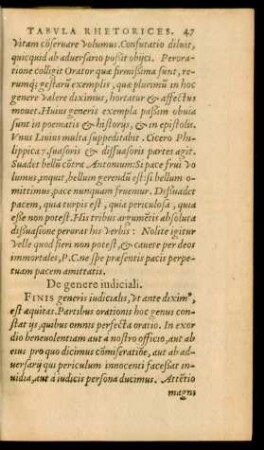 TABVLA RHETORICES. 47
Vitam cōseruare volumus. Confutatio diluit,
quicquid ab aduersario possit obijci. Perora-
tione colligit Orator quæ firmissima sunt, re-
rumq; gestarū exemplis, quæ plurimū in hoc
genere valere diximus, hortatur & affectus
mouet. Huius generis exempla passim obuia
sunt in poematis & historijs, & in epistolis.
Vnus Liuius multa suppeditabit. Cicero Phi-
lippica 7. suasoris & dissuasoris partes agit.
Suadet bellū cōtre Antonium: Si pace frui vo
lumus, inquit, bellum gerendū est: si bellum o-
mittimus, pace nunquam fruemur. Dissuadet
pacem, quia turpis est, quia periculosa, quia
esse non potest. His tribus argumētis absoluta
dissuasione perorat his verbis: Nolite igitur
velle quod fieri non potest, & cauete per deos
immortales, P.C. ne spe præsentis pacis perpe
tuam pacem amittatis.
De genere iudiciali.
FINIS generis iudicialis, vt ante diximꝰ,
est æquitas. Partibus orationis hoc genus con
stat ijs, quibus omnis perfecta oratio. In exor
dio beneuolentiam aut à nostro officio, aut ab
eius pro quo dicimus cōmiseratiōe, aut ab ad-
uersarij qui periculum innocenti facessat in-
uidia, aut à iudicis persona ducimus. Attētio
magni